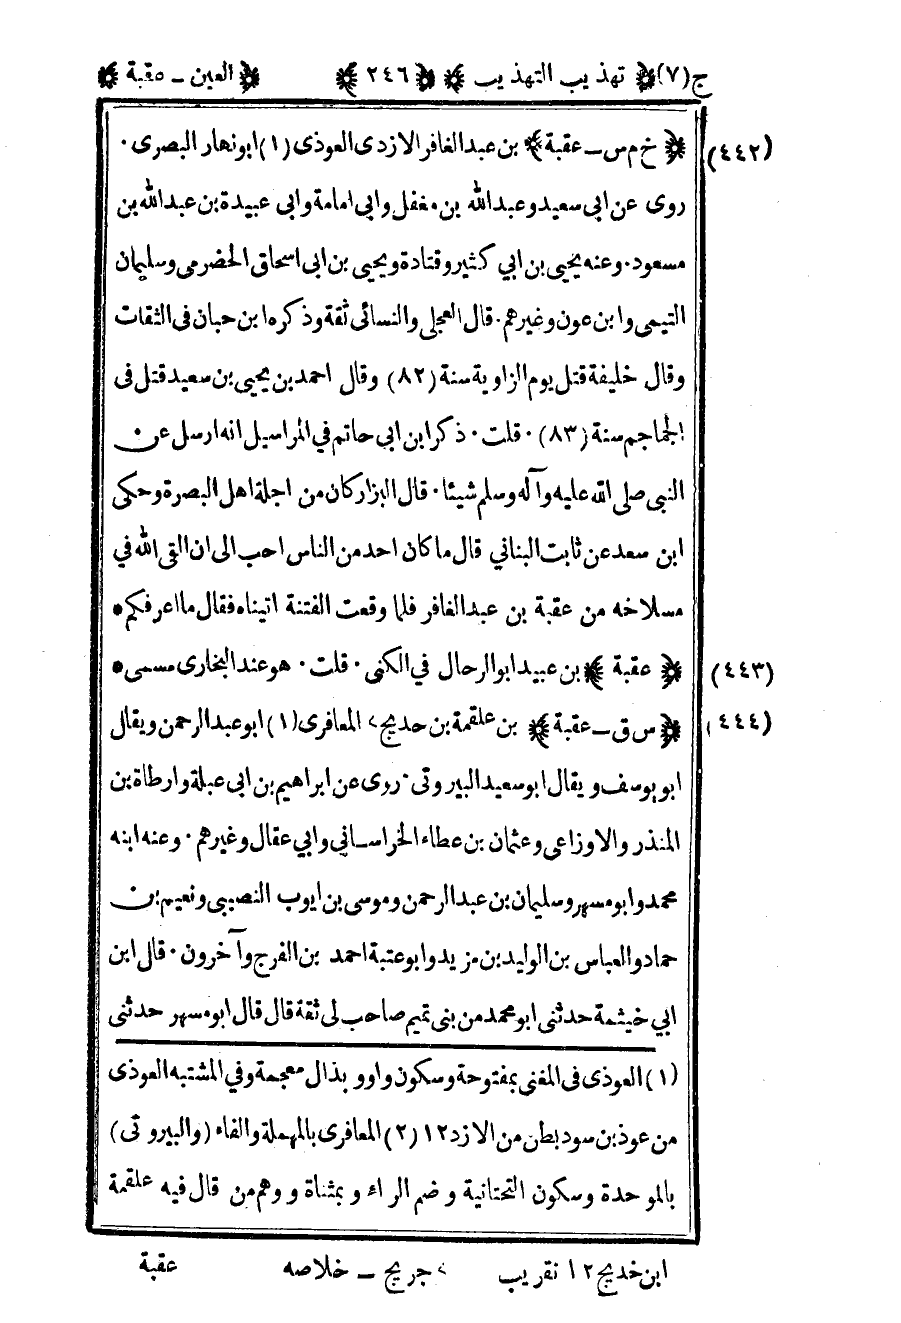 ج(٧) ﴿ تهذيب التهذيب ﴾ ﴿ ٢٤٦ ﴾ ﴿ العين ــ عقبة ﴾
(٤٤٢) ﴿ خ م س ــ عقبة ﴾ بن عبد الغافر الازدى العوذى (١) ابو نهار البصرى ·
روى عن ابى سعيد وعبد الله بن مغفل وابى امامة وابى عبيدة بن عبد الله بن
مسعود · وعنه يحيى بن ابي كثير وقتادة ويحيى بن ابى اسحاق الحضرمى وسليمان
التيمى وابن عون وغيرهم · قال العجلى والنسائى ثقة وذكره ابن حبان فى الثقات
وقال خليفة قتل يوم الزاوية سنة (٨٢) وقال احمد بن يحيى بن سعيد قتل فى
الجماجم سنة (٨٣) · قلت · ذكر ابن ابى حاتم في المراسيل انه ارسل عن
النبى صلى الله عليه وآله وسلم شيئا · قال البزار كان من اجلة اهل البصرة وحكى
ابن سعد عن ثابت البناني قال ما كان احد من الناس احب الى ان القى الله في
مسلاخه من عقبة بن عبد الغافر فلما وقعت الفتنة اتيناه فقال ما اعرفكم •
(٤٤٣) ﴿ عقبة ﴾ بن عبيد ابو الرحال في الكنى · قلت · هو عند البخارى مسمى •
(٤٤٤) ﴿ س ق ــ عقبة ﴾ بن علقمة بن حديج > المعافرى (١) ابو عبد الرحمن ويقال
ابو يوسف ويقال ابو سعيد البيروتى · روى عن ابراهيم بن ابى عبلة وارطاة بن
المنذر والاوزاعى وعثمان بن عطاء الخراساني وابي عقال وغيرهم · وعنه ابنه
محمد وابو مسهر وسليمان بن عبد الرحمن وموسى بن ايوب النصيبى ونعيم بن
حماد والعباس بن الوليد بن مزيد وابو عتبة احمد بن الفرج وآخرون · قال ابن
ابي خيثمة حدثنى ابو محمد من بنى تميم صاحب لى ثقة قال قال ابو مسهر حدثنى
(١) العوذى فى المغنى بمفتوحة وسكون واو و بذال معجمة وفي المشتبه العوذى
من عوذ بن سود بطن من الازد ١٢ (٢) المعافرى بالمهملة والفاء (والبيروتى)
بالموحدة وسكون التحتانية وضم الراء و بمثناة و وهم من قال فيه علقمة
ابن خديج ١٢ تقريب > جريج ــ خلاصه عقبة